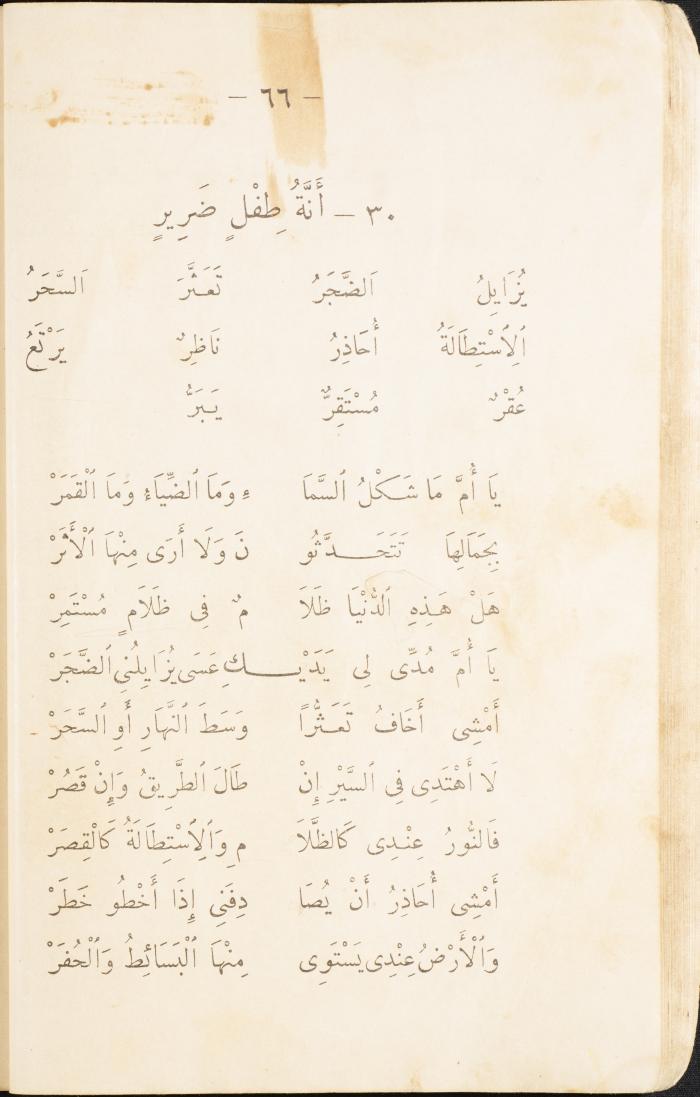 — ٦٦ —
٣٠ — أَنَّةُ طِفْلٍ ضَرِيرٍ
يُزَايِلُ اَلضَّجَرُ تَعَثَّرَ اَلسَّحَرُ
اَلِاسْتِطَالَةُ أُحَاذِرُ نَاظِرٌ يَرْتَعُ
عُقْرٌ مُسْتَقِرٌّ يَبَرُّ
يَا أُمَّ مَا شَكْلُ ٱلسَّمَا ءِ وَمَا ٱلضِّيَاءُ وَمَا ٱلْقَمَرْ
بِجَمَالِهَا تَتَحَدَّثُو نَ وَلَا أَرَى مِنْهَا ٱلْأَثَرْ
هَلْ هَذِهِ ٱلدُّنْيَا ظَلَا مٌ فِى ظَلَامٍ مُسْتَمِرْ
يَا أُمَّ مُدِّى لِى يَدَيْـكِ عَسَى يُزَايِلُنِى ٱلضَّجَرْ
أَمْشِى أَخَافُ تَعَثُّراً وَسَطَ ٱلنَّهَارِ أَوِ ٱلسَّحَرْ
لَا أَهْتَدِى فِى ٱلسَّيْرِ إِنْ طَالَ ٱلطَّرِيقُ وَإِنْ قَصُرْ
فَالنُّورُ عِنْدِى كَالظَّلَا مِ وَٱلِاسْتِطَالَةُ كَالْقِصَرْ
أَمْشِى أُحَاذِرُ أَنْ يُصَا دِفَنِى إِذَا أَخْطُو خَطَرْ
وَٱلْأَرْضُ عِنْدِى يَسْتَوِى مِنْهَا ٱلْبَسَائِطُ وَٱلْحُفَرْ